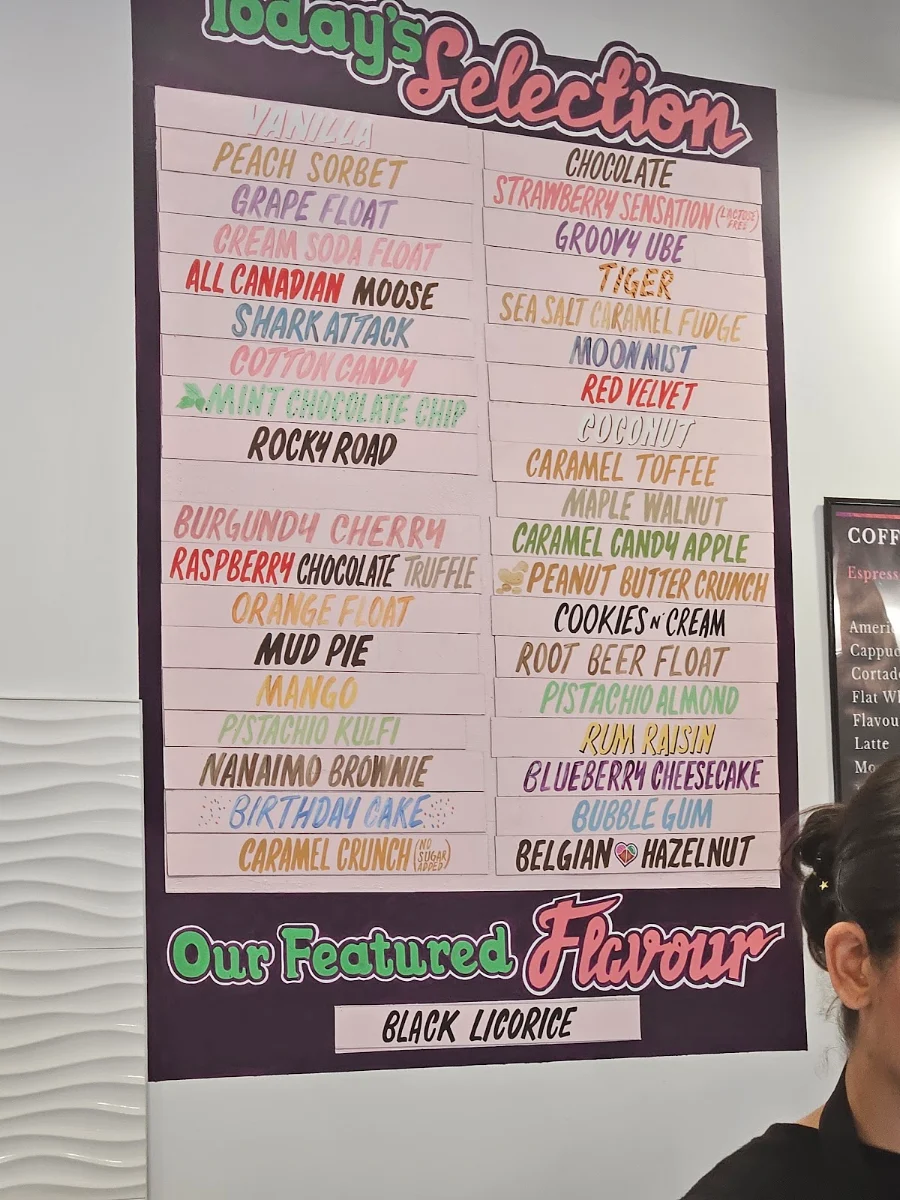 Today's Selection
VANILLA
PEACH SORBET
GRAPE FLOAT
CREAM SODA FLOAT
ALL CANADIAN MOOSE
SHARK ATTACK
COTTON CANDY
MINT CHOCOLATE CHIP
ROCKY ROAD
BURGUNDY CHERRY
RASPBERRY CHOCOLATE TRUFFLE
ORANGE FLOAT
MUD PIE
MANGO
PISTACHIO KULFI
NANAIMO BROWNIE
BIRTHDAY CAKE
CARAMEL CRUNCH (NO SUGAR ADDED)
CHOCOLATE
STRAWBERRY SENSATION (LACTOSE FREE)
GROOVY UBE
TIGER
SEA SALT CARAMEL FUDGE
MOON MIST
RED VELVET
COCONUT
CARAMEL TOFFEE
MAPLE WALNUT
CARAMEL CANDY APPLE
PEANUT BUTTER CRUNCH
COOKIES N' CREAM
ROOT BEER FLOAT
PISTACHIO ALMOND
RUM RAISIN
BLUEBERRY CHEESECAKE
BUBBLE GUM
BELGIAN HAZELNUT
Our Featured Flavour
BLACK LICORICE
Latte